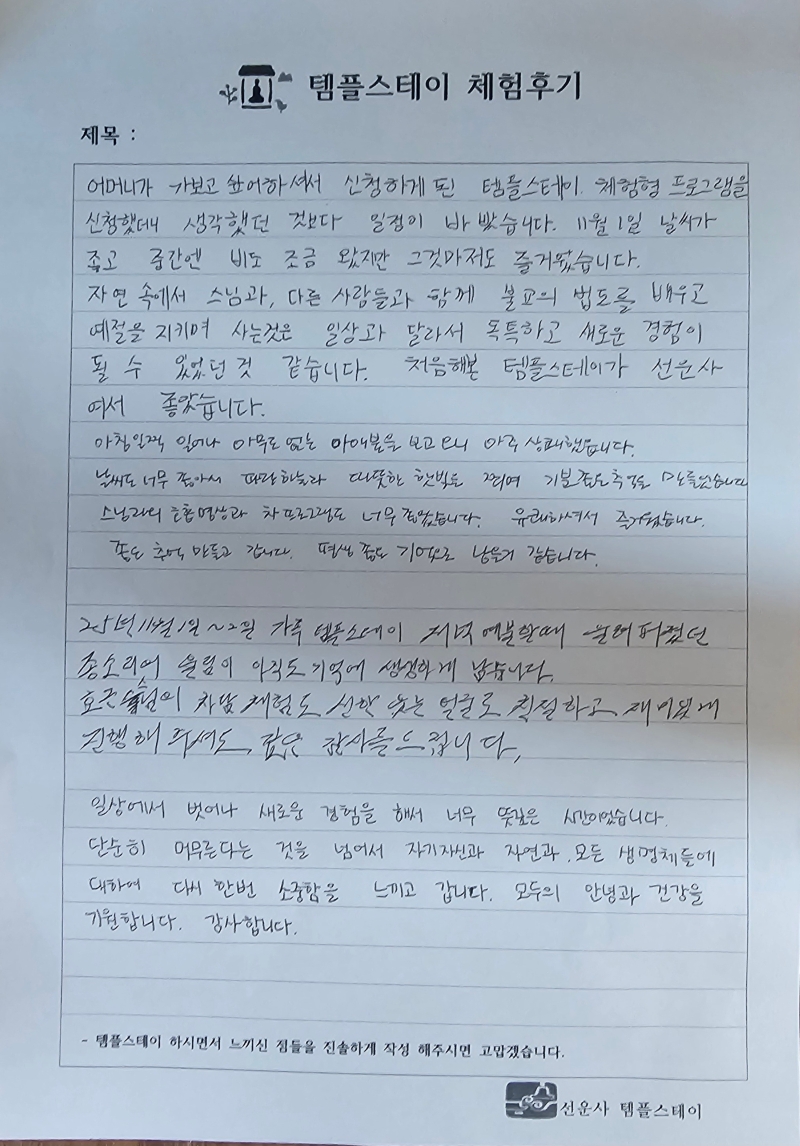 템플스테이 체험후기
제목 :
어머니가 가보고 싶어하셔서 신청하게 된 템플스테이. 체험형 프로그램을
신청했더니 생각했던 것보다 일정이 바빴습니다. 11월 1일 날씨가
좋고 중간엔 비도 조금 왔지만 그것마저도 즐거웠습니다.
자연 속에서 스님과, 다른 사람들과 함께 불교의 법도를 배우고
예절을 지키며 사는것은 일상과 달라서 독특하고 새로운 경험이
될 수 있었던 것 같습니다. 처음해본 템플스테이가 선운사
여서 좋았습니다.
아침일찍 일어나 아무도 없는 마애불을 보고 오니 아주 상쾌했습니다.
날씨도 너무 좋아서 파란하늘과 따뜻한 햇빛을 쬐며 기분좋은 추억을 만들었습니다
스님과의 호흡명상과 차프로그램도 너무 좋았습니다. 유쾌하셔서 즐거웠습니다.
좋은 추억 만들고 갑니다. 평생 좋은 기억으로 남을거 같습니다.
25년 11월 1일 ~ 2일 하루 템플스테이 저녁 예불할때 울려퍼졌던
종소리의 울림이 아직도 기억에 생생하게 남습니다.
스님의 차담 체험도 웃는 얼굴로 친절하고 재미있게
진행해 주셔도, 깊은 감사를 드립니다.
일상에서 벗어나 새로운 경험을 해서 너무 뜻깊은 시간이었습니다.
단순히 머무른다는 것을 넘어서 자기자신과 자연과, 모든 생명체들에
대하여 다시 한번 소중함을 느끼고 갑니다. 모두의 안녕과 건강을
기원합니다. 감사합니다.
- 템플스테이 하시면서 느끼신 점들을 진솔하게 작성 해주시면 고맙겠습니다.
선운사 템플스테이